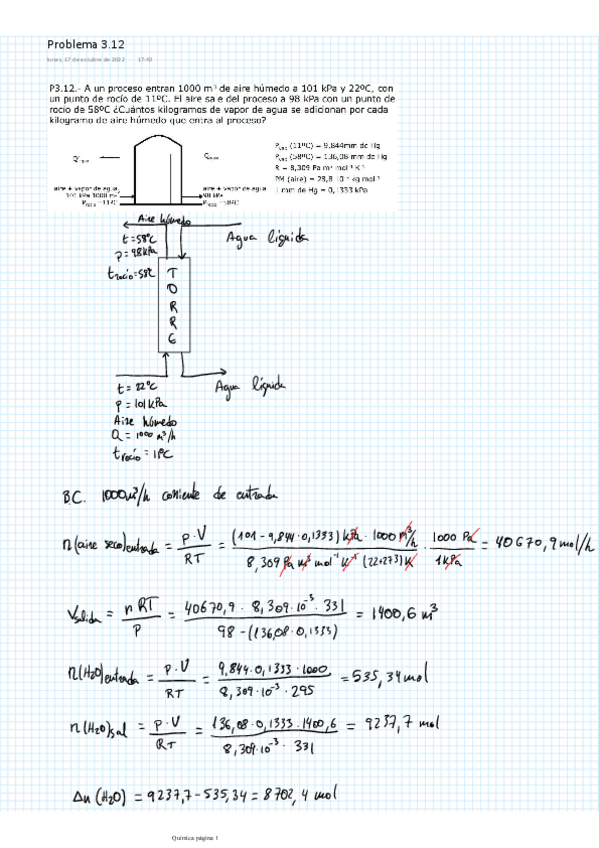 Problema 3.12
lunes, 17 de octubre de 2022 17:40
P3.12.- A un proceso entran 1000 m³ de aire húmedo a 101 kPa y 22ºC, con
un punto de rocío de 11ºC. El aire sa e del proceso a 98 kPa con un punto de
rocío de 58ºC ¿Cuántos kilogramos de vapor de agua se adicionan por cada
kilogramo de aire húmedo que entra al proceso?
Pvap (11ºC) = 9,844mm de Hg
Pvap (58ºC) = 136,08 mm de Hg
R = 8,309 Pa m³ mol⁻¹ K⁻¹
PM (aire) = 28,8 10⁻³ kg mol⁻¹
1 mm de Hg = 0,1333 kPa
aire + vapor de agua,
aire + vapor de agua
Aire húmedo
t = 58ºC
p = 98 kPa
t rocío = 58ºC
Agua líquida
TORRE
t = 22ºC
p = 101 kPa
Aire húmedo
Q = 1000 m³/h
t rocío = 11ºC
Agua líquida
B.C. 1000 m³/h corriente de entrada
n(aire seco)entrada = p·V / RT = (101 - 9,844·0,1333) kPa · 1000 m³/h / 8,309 Pa m³ mol⁻¹ K⁻¹ (22+273) K · 1000 Pa / 1 kPa = 40670,9 mol/h
Vsalida = nRT / P = 40670,9 · 8,309·10⁻³ · 331 / 98 - (136,08 · 0,1333) = 1400,6 m³
n(H2O)entrada = p·V / RT = 9,844·0,1333·1000 / 8,309·10⁻³ · 295 = 535,34 mol
n(H2O)sal = p·V / RT = 136,08·0,1333·1400,6 / 8,309·10⁻³ · 331 = 9237,7 mol
Δn (H2O) = 9237,7 - 535,34 = 8702,4 mol
Química página 1